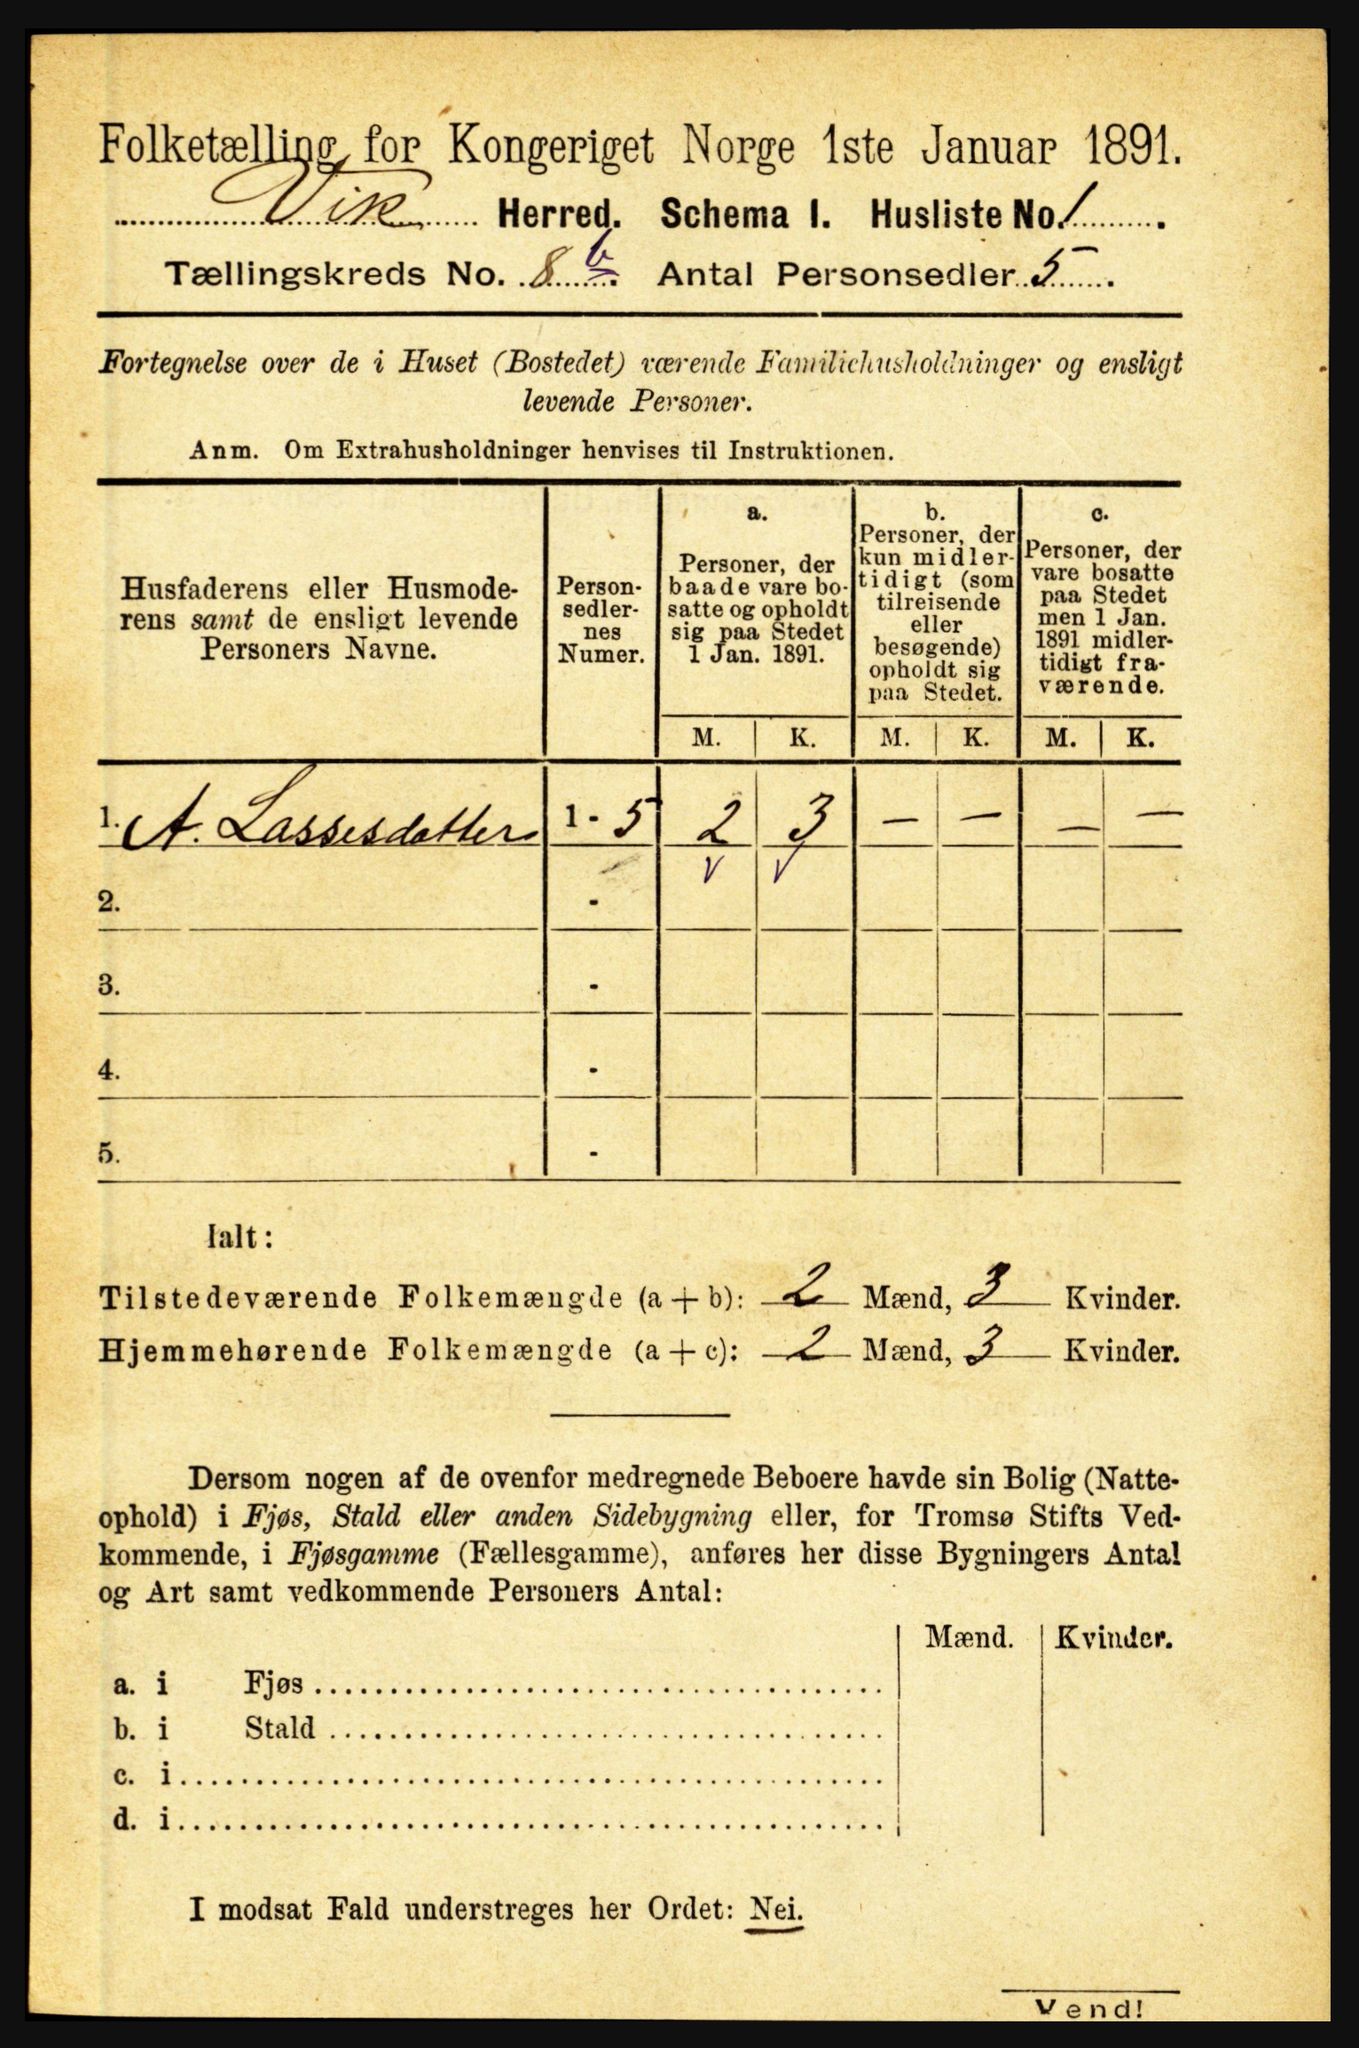 Folketælling for Kongeriget Norge 1ste Januar 1891.
Vik Herred. Schema I. Husliste No. 1.
Tællingskreds No. 8 b. Antal Personsedler 5.
Fortegnelse over de i Huset (Bostedet) værende Familiehusholdninger og ensligt
levende Personer.
Anm. Om Extrahusholdninger henvises til Instruktionen.
Husfaderens eller Husmode-
rens samt de ensligt levende
Personers Navne.
Person-
sedler-
nes
Numer.
a.
Personer, der
baade vare bo-
satte og opholdt
sig paa Stedet
1 Jan. 1891.
b.
Personer, der
kun midler-
tidigt (som
tilreisende
eller
besøgende)
opholdt sig
paa Stedet.
c.
Personer, der
vare bosatte
paa Stedet
men 1 Jan.
1891 midler-
tidigt fra-
værende.
M. K. M. K. M. K.
1. A. Lassesdatter 1 - 5 2 3 — — — —
2. -
3. -
4. -
5. -
Ialt:
Tilstedeværende Folkemængde (a + b): 2 Mænd, 3 Kvinder.
Hjemmehørende Folkemængde (a + c): 2 Mænd, 3 Kvinder.
Dersom nogen af de ovenfor medregnede Beboere havde sin Bolig (Natte-
ophold) i Fjøs, Stald eller anden Sidebygning eller, for Tromsø Stifts Ved-
kommende, i Fjøsgamme (Fællesgamme), anføres her disse Bygningers Antal
og Art samt vedkommende Personers Antal:
Mænd. Kvinder.
a. i Fjøs
b. i Stald
c. i
d. i
I modsat Fald understreges her Ordet: Nei.
Vend!